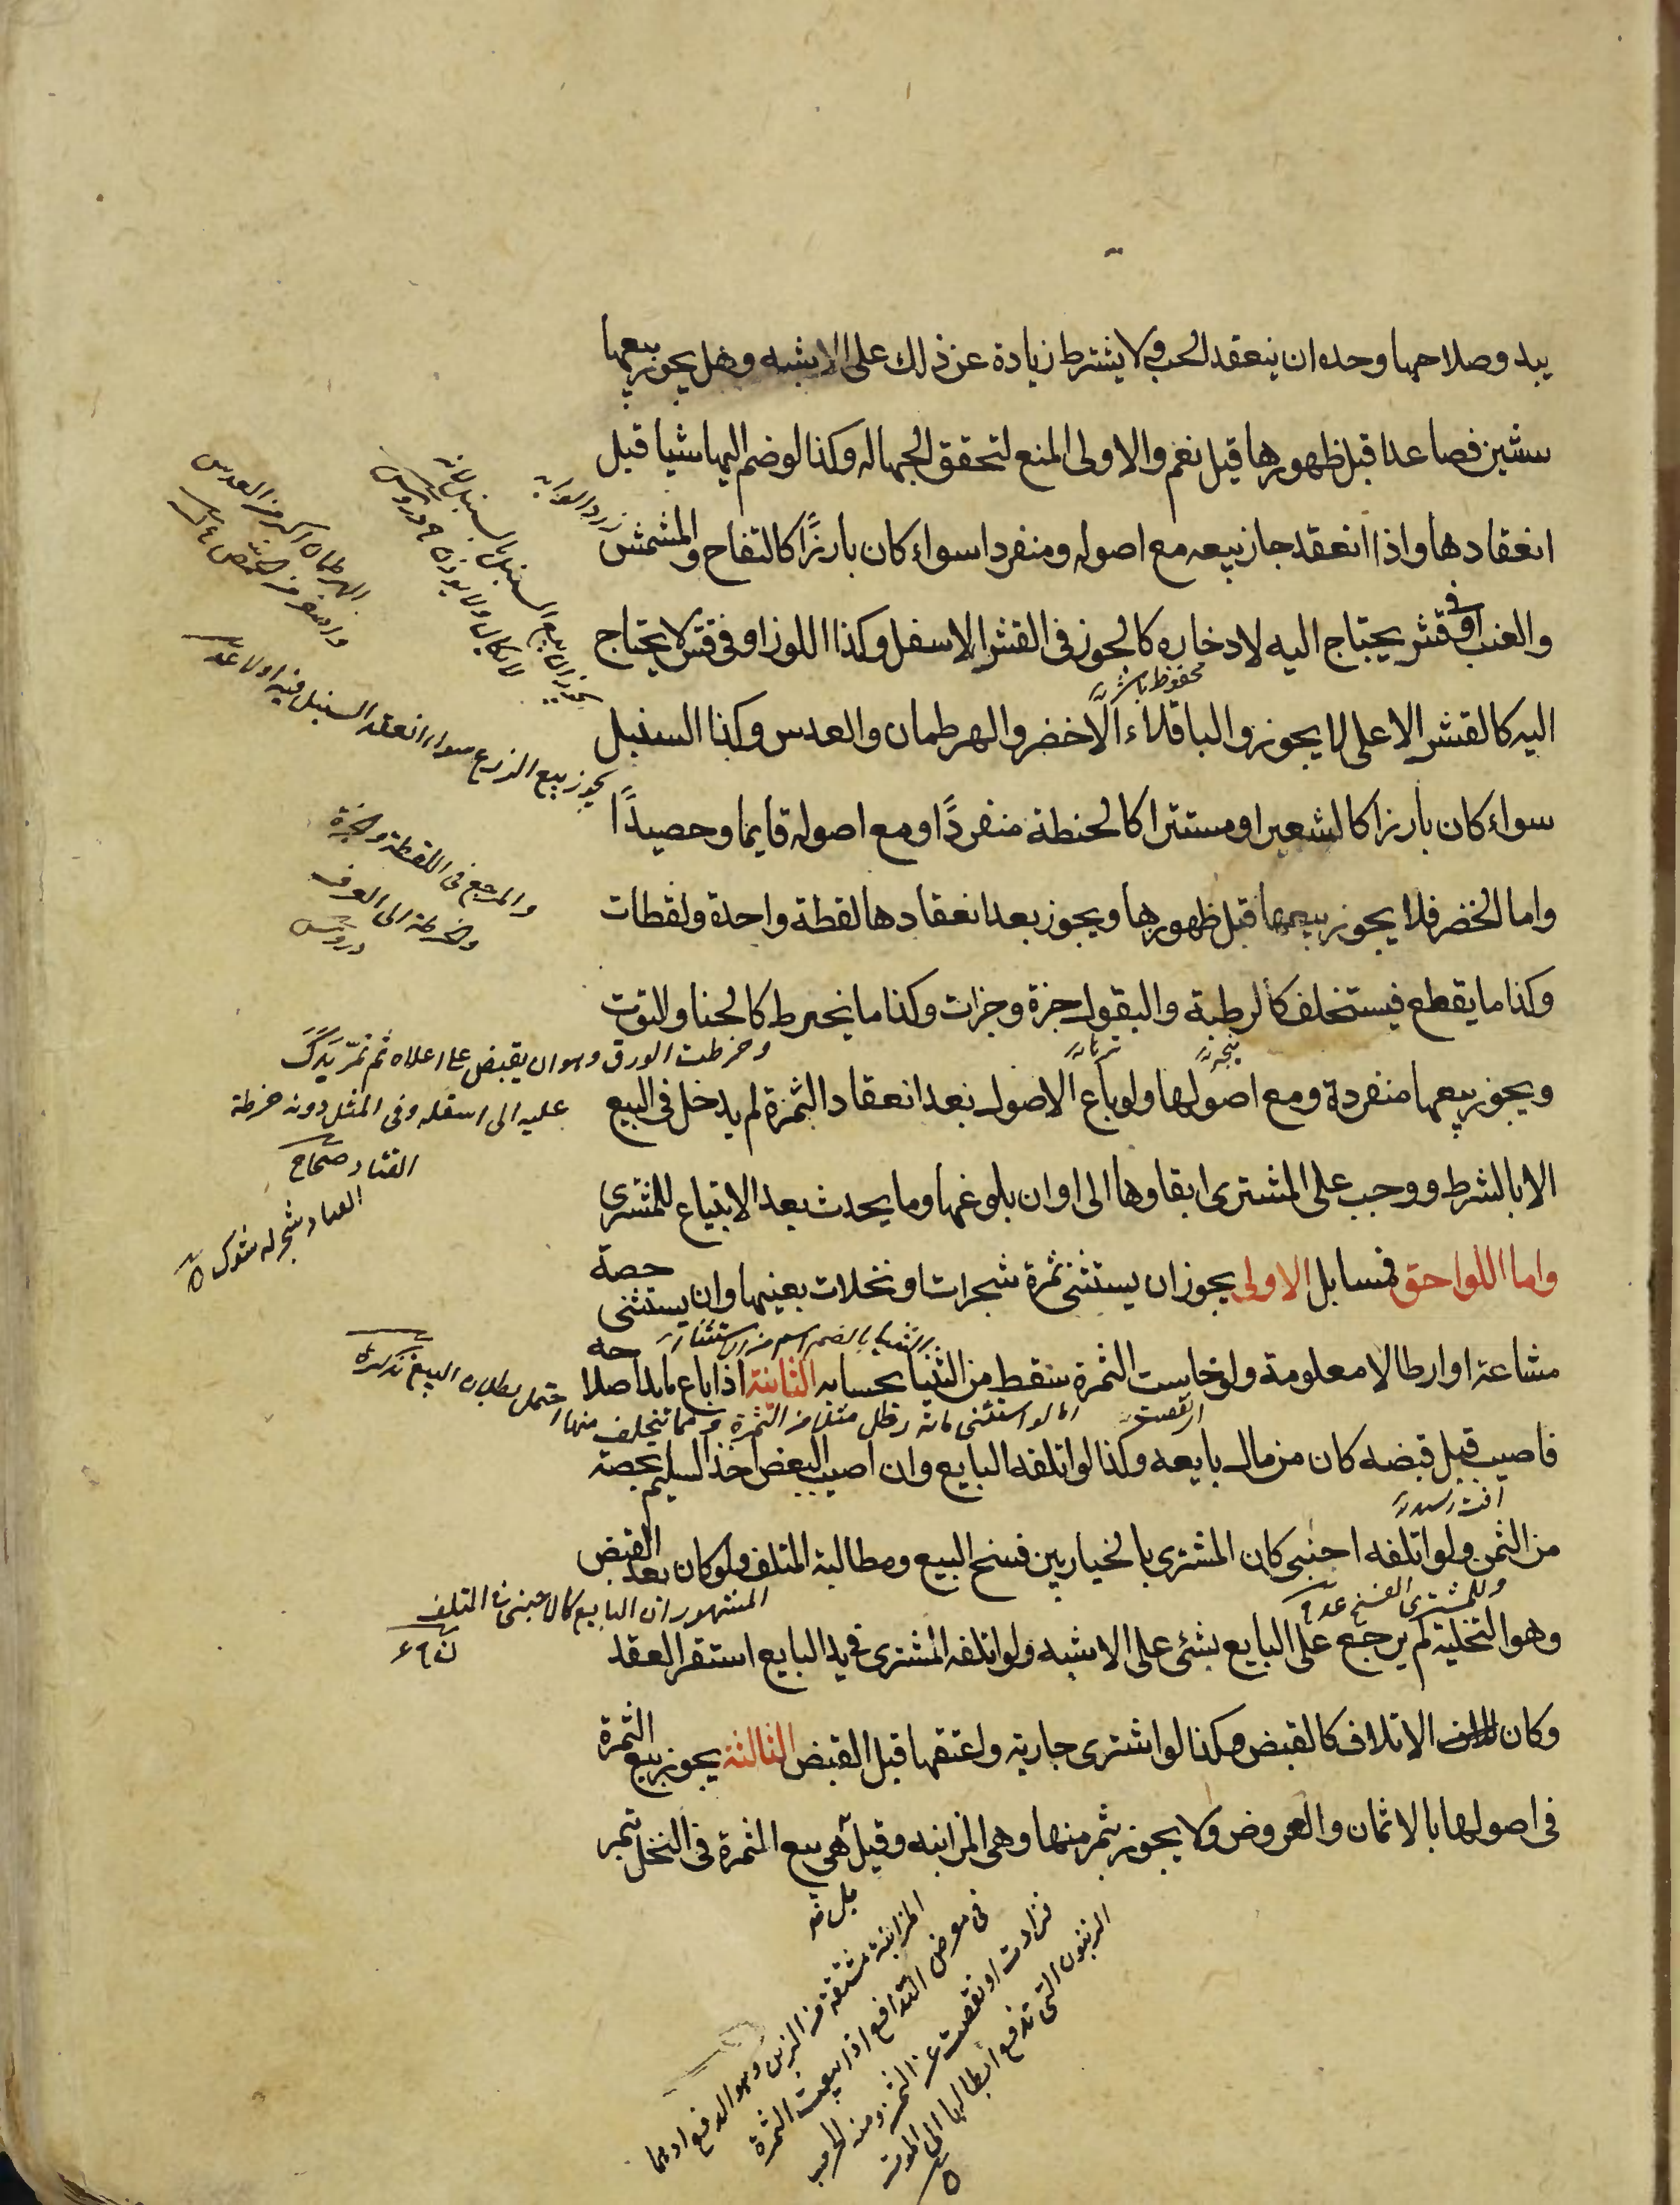 يبدو صلاحها وحده ان ينعقد الحب ولا يشترط زيادة عن ذلك على الاشبه وهل يجوز بيعها
سنتين فصاعدا قبل ظهورها قيل نعم والاولى المنع لتحقق الجهالة وكذا لو ضم اليها شيا قبل
انعقادها واذا انعقد جاز بيعه مع اصوله ومنفردا سواء كان بارزًا كالتفاح والمشمش
والعنب او فى قشر يحتاج اليه لادخاره كالجوز فى القشر الاسفل وكذا اللوز او فى قشر لا يحتاج
اليه كالقشر الاعلى للجوز والباقلاء الاخضر والهرطمان والعدس وكذا السنبل
سواء كان بارزا كالشعير او مستترا كالحنطة منفردًا او مع اصوله قايما وحصيدًا
واما الخضر فلا يجوز بيعها قبل ظهورها ويجوز بعد انعقادها لقطة واحدة ولقطات
وكذا ما يقطع فيستخلف كالرطبة والبقول جزة وجزات وكذا ما يخرط كالحنا والتوت
ويجوز بيعها منفردة ومع اصولها ولو باع الاصول بعد انعقاد الثمرة لم يدخل فى البيع
الا بالشرط ووجب على المشترى ابقاوها الى اوان بلوغها وما يحدث بعد الابتياع للمشترى
واما اللواحق فمسايل الاولى يجوز ان يستثنى ثمرة شجرات او نخلات بعينها وان يستثنى حصة
مشاعة او ارطالا معلومة ولو خاست الثمرة سقط من الثنيا بحسابه الثانية اذا باع ما بدا صلاحه
فاصيب قبل قبضه كان من مال بايعه وكذا لو اتلفه البايع وان اصيب البعض اخذ السليم بحصته
من الثمن ولو اتلفه اجنبى كان المشترى بالخيار بين فسخ البيع ومطالبة المتلف ولو كان بعد القبض
وهو التخلية لم يرجع على البايع بشئ على الاشبه ولو اتلفه المشترى فى يد البايع استقر العقد
وكان الاتلاف كالقبض وكذا لو اشترى جارية واعتقها قبل القبض الثالثة يجوز بيع الثمرة
فى اصولها بالاثمان والعروض ولا يجوز بثمر منها وهى المزابنه وقيل هى بيع الثمرة فى النخل بتمر
الهرطمان اكبر من العدس
واصغر من الحمص
يجوز بيع الزرع سواء انعقد السنبل فيه اولا
والمرجع فى اللقطة والجزة
والخرطة الى العرف
دروس
وخرطت الورق وهو ان يقبض على اعلاه ثم تمر يدك
عليه الى اسفله وفى المثل دونه خرطة
القتاد صحاح
القتاد شجر له شوك
الثنيا بالضم اسم من الاستثناء
اى نقصت
وللمشترى الفسخ
المشهور ان البايع كالاجنبى
المزابنة مشتقة من الزبن وهو الدفع
فى معرض التدافع اذا بيعت الثمرة
فزادت او نقصت عن الثمر ومنه الحرب
الزبون التى تدفع ابطالها الى الموت